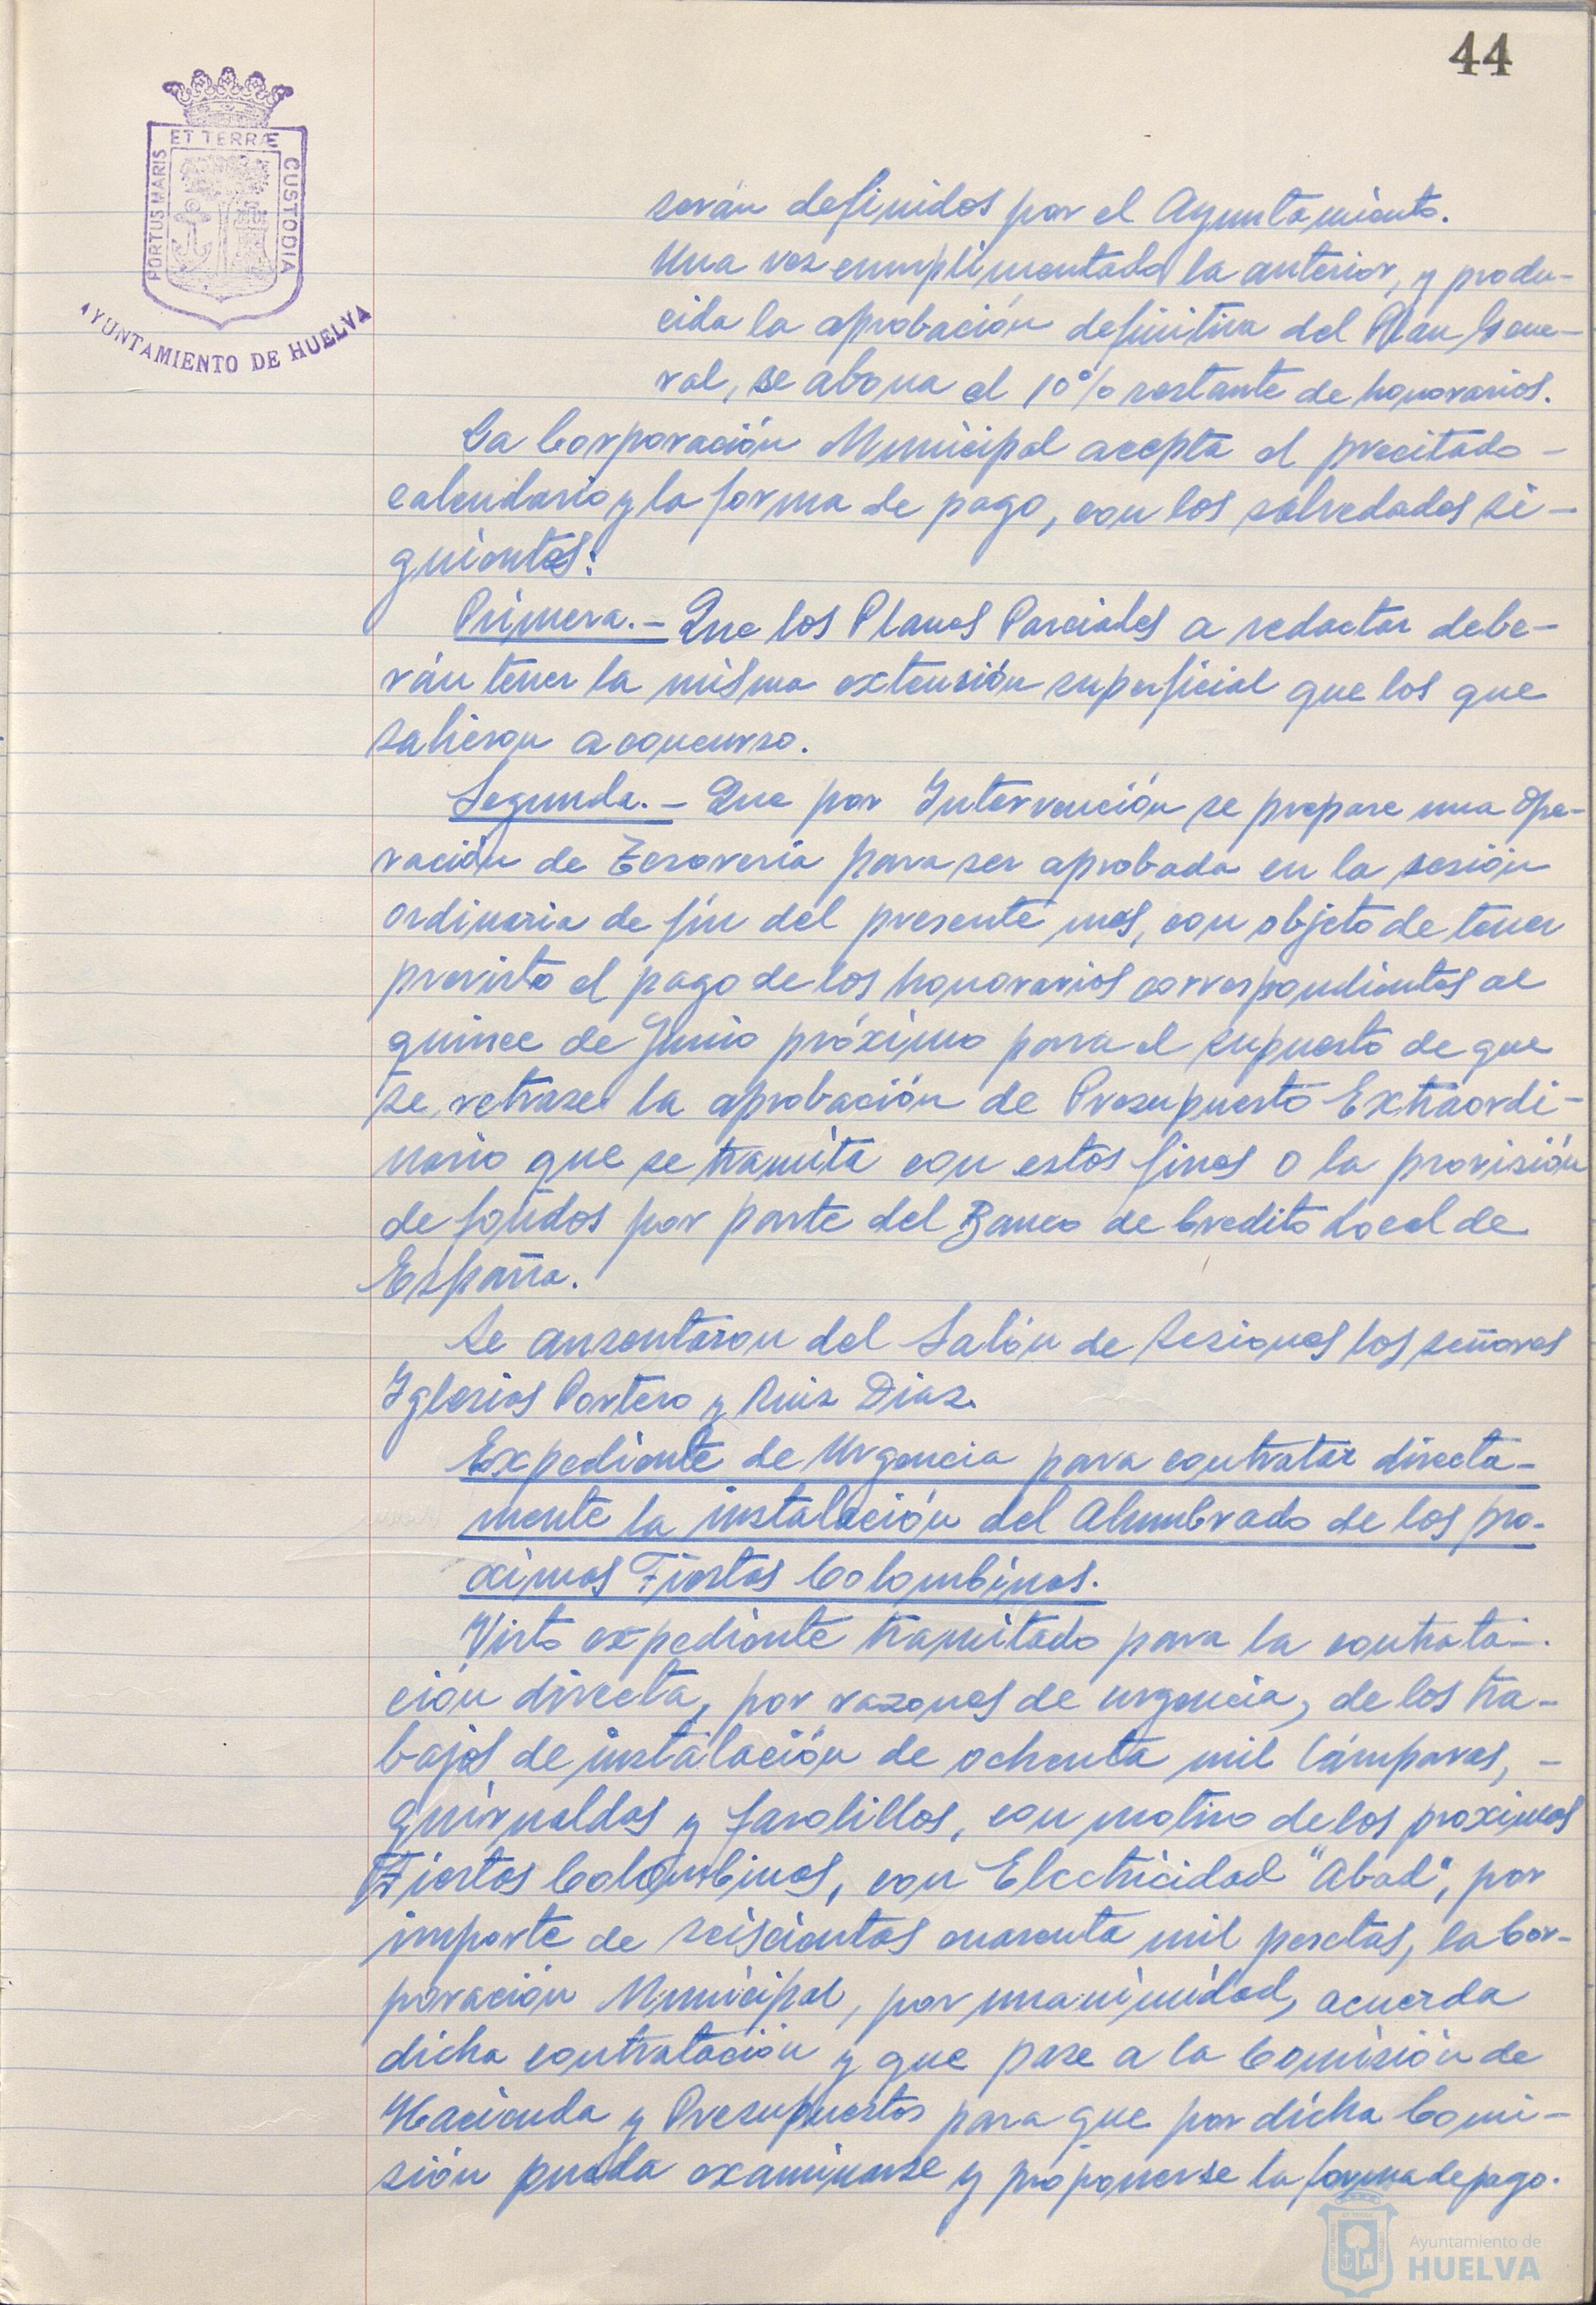 44
PORTUS MARIS
ET TERRÆ
CUSTODIA
AYUNTAMIENTO DE HUELVA
serán definidos por el Ayuntamiento.
Una vez cumplimentada la anterior, y produ-
cida la aprobación definitiva del Plan Gene-
ral, se abona el 10% restante de honorarios.
La Corporación Municipal acepta el precitado -
calendario y la forma de pago, con las salvedades si-
guientes:
Primera.- Que los Planes Parciales a redactar debe-
rán tener la misma extensión superficial que los que
salieron a concurso.
Segunda.- Que por Intervención se prepare una Ope-
ración de Tesorería para ser aprobada en la sesión
ordinaria de fin del presente mes, con objeto de tener
previsto el pago de los honorarios correspondientes al
quince de Junio próximo para el supuesto de que
se retrase la aprobación de Presupuesto Extraordi-
nario que se tramita con estos fines o la provisión
de fondos por parte del Banco de Credito Local de
España.
Se ausentaron del Salón de Sesiones los señores
Iglesias Portero y Ruiz Diaz.
Expediente de Urgencia para contratar directa-
mente la instalación del Alumbrado de las pro-
ximas Fiestas Colombinas.
Visto expediente tramitado para la contrata-
ción directa, por razones de urgencia, de los tra-
bajos de instalación de ochenta mil lámparas, -
guirnaldas y farolillos, con motivo de las proximas
Fiestas Colombinas, con Electricidad "Abad", por
importe de seiscientas cuarenta mil pesetas, la Cor-
poración Municipal, por unanimidad, acuerda
dicha contratación y que pase a la Comisión de
Hacienda y Presupuestos para que por dicha Comi-
sión pueda examinarse y proponerse la forma de pago.
Ayuntamiento de
HUELVA